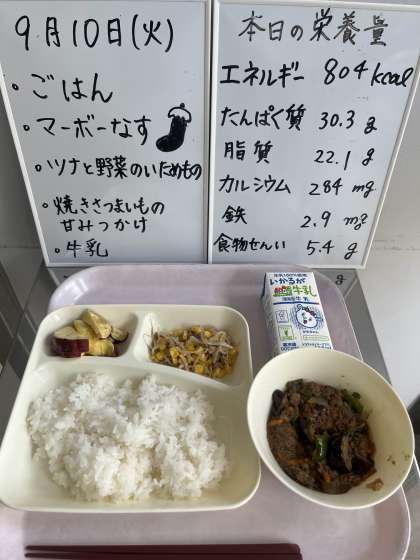 9月10日(火)
・ごはん
・マーボーなす
・ツナと野菜のいためもの
・焼きさつまいもの
甘みつかけ
・牛乳
本日の栄養量
エネルギー 804kcal
たんぱく質 30.3g
脂質 22.1g
カルシウム 284mg
鉄 2.9mg
食物せんい 5.4g
g
いかるが
牛乳